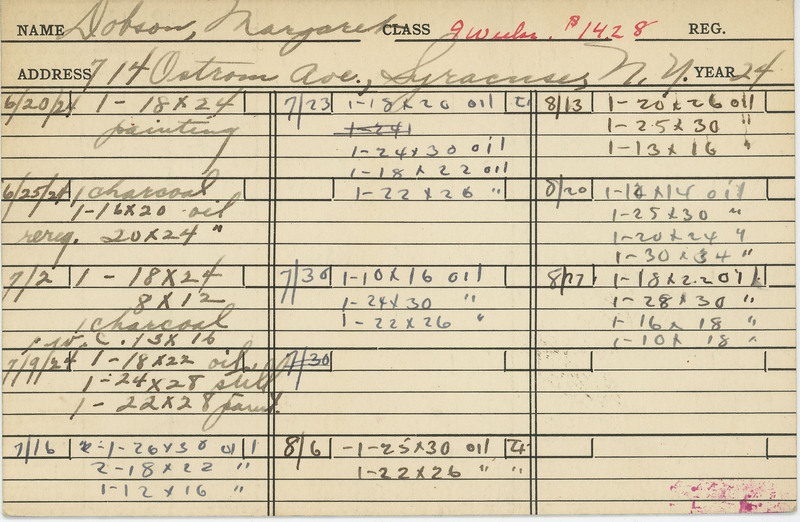 NAME Dobson, Margaret CLASS 9 weeks. $14.28 REG.
ADDRESS 714 Ostrom Ave., Syracuse, N.Y. YEAR 24
6/20/24 1 - 18 X 24
painting
6/25/24 1 charcoal
1-16x20 oil
rereg. 20X24 "
7/2 1 - 18X24
8 X 12
1 charcoal
13 X 16
7/9/24 1-18X22 oil
1-24X28 still
1-22X28 paint.
7/16 2-1-26X30 oil
2-18X22 "
1-12 X 16 "
7/23 1-18X26 oil
1-24
1-24X30 oil
1-18 X 22 oil
1-22X26 "
7/30 1-10X16 oil
1-24X30 "
1-22X26 "
7/30
8/6 -1-25X30 oil
1-22X26 "
8/13 1-20X26 oil
1-25X30 "
1-13X16 "
8/20 X14 oil
1-25X30 "
1-20X24 "
1-30X34 "
8/27 1-18X22 oil
1-28X30 "
1-16X18 "
1-10X18 "